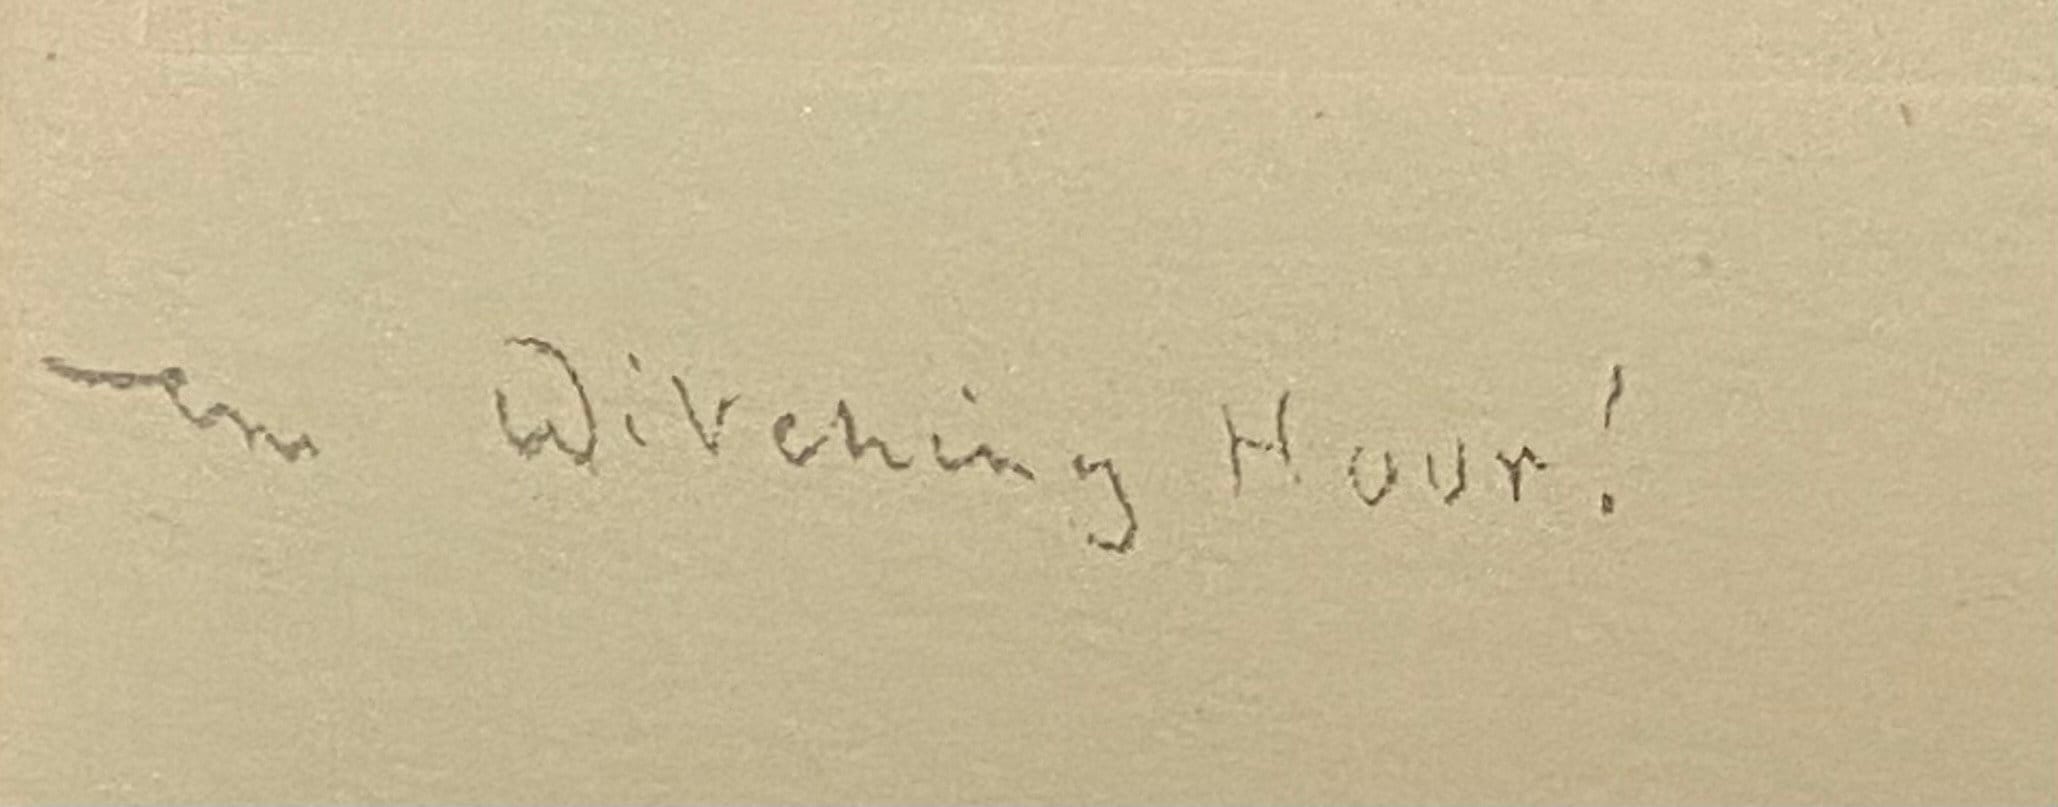 Witching Hour!